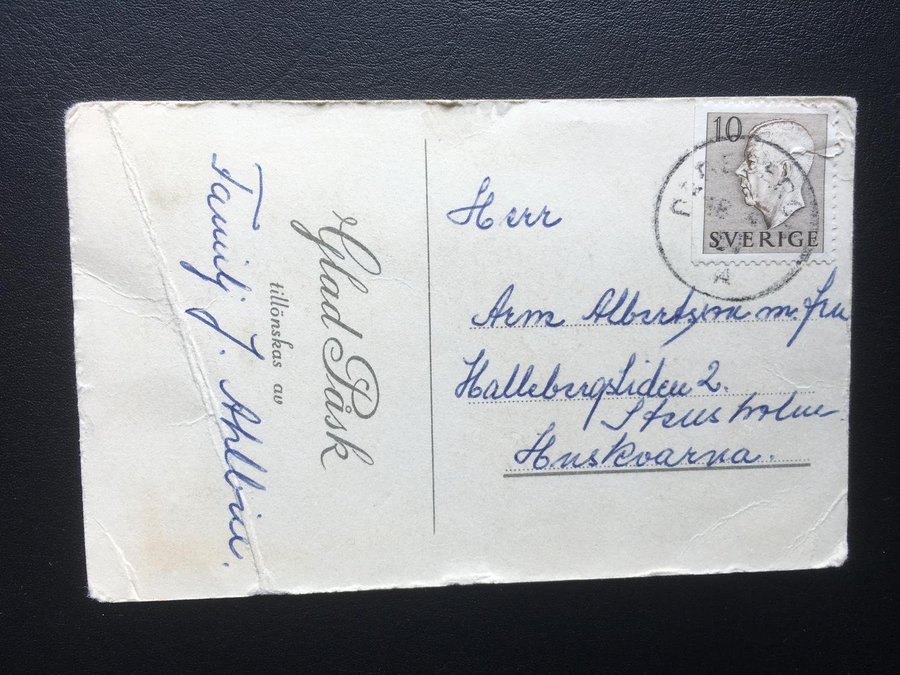 Glad Påsk
tillönskas av
Familj J. Ahlbin.
10
SVERIGE
A
Herr
Arne Albertsson m. fru
Hallebergsliden 2.
Stensholm
Huskvarna.